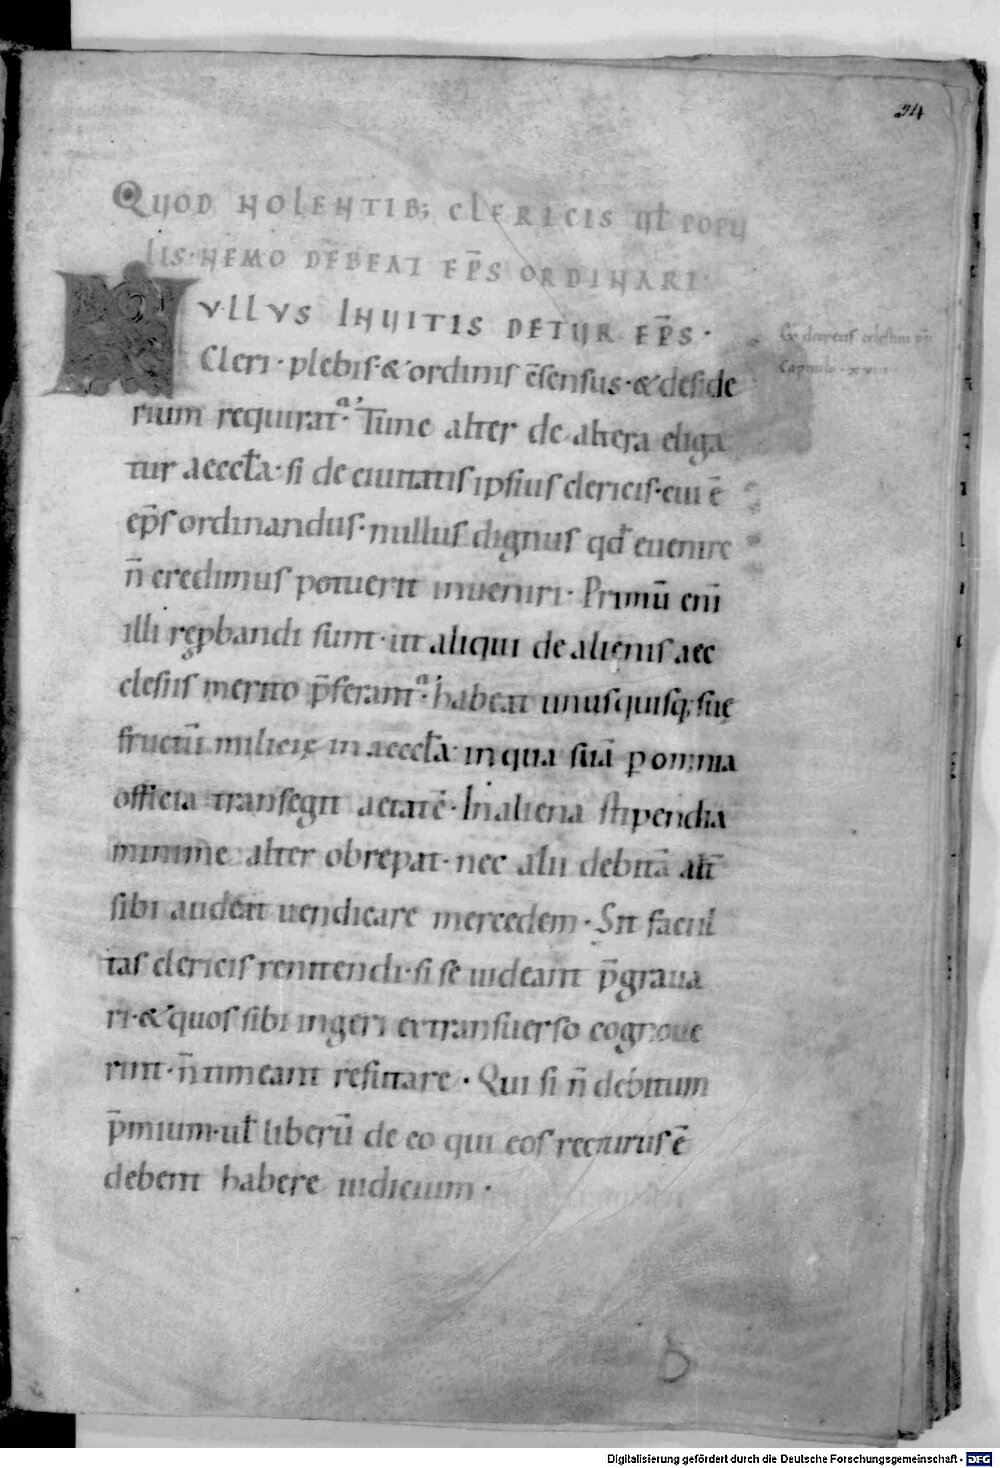 24
QUOD NOLENTIB; CLERICIS Uł POPU
LIS· NEMO DEBEAT EP̄S ORDINARI·
NVLLVS INUITIS DETUR EP̄S·
Cleri· plebis· & ordinis c̄sensus· & deside
rium requirat᷑· Tunc alter de altera eliga
tur aeccła· si de ciuitatis ipsius clericis· cui ē
ep̄s ordinandus· nullus dignus qđ euenire
n̄ credimus potuerit inueniri· Primū eni̅
illi rep̱bandi sunt· ut aliqui de alienis aec
clesiis merito p̄ferant᷑· habeat unusquisq; suę
fructū milicię in aeccła· in qua suā p̱ omnia
officia transegit aetatē· In aliena stipendia
minime alter obrepat· nec alii debitā alt̄
sibi audeat uendicare mercedem· Sit facul
tas clericis renitendi· si se uideant p̄graua
ri· & quos sibi ingeri ex transuerso cognoue
rint· n̄ timeant refutare· Qui si n̄ debitum
p̄mium· uł liberū de eo qui eos recturus ē
debent habere iudicium·
Ex decretis celestini pp̄
Capitulo· XVIII·
Digitalisierung gefördert durch die Deutsche Forschungsgemeinschaft - DFG